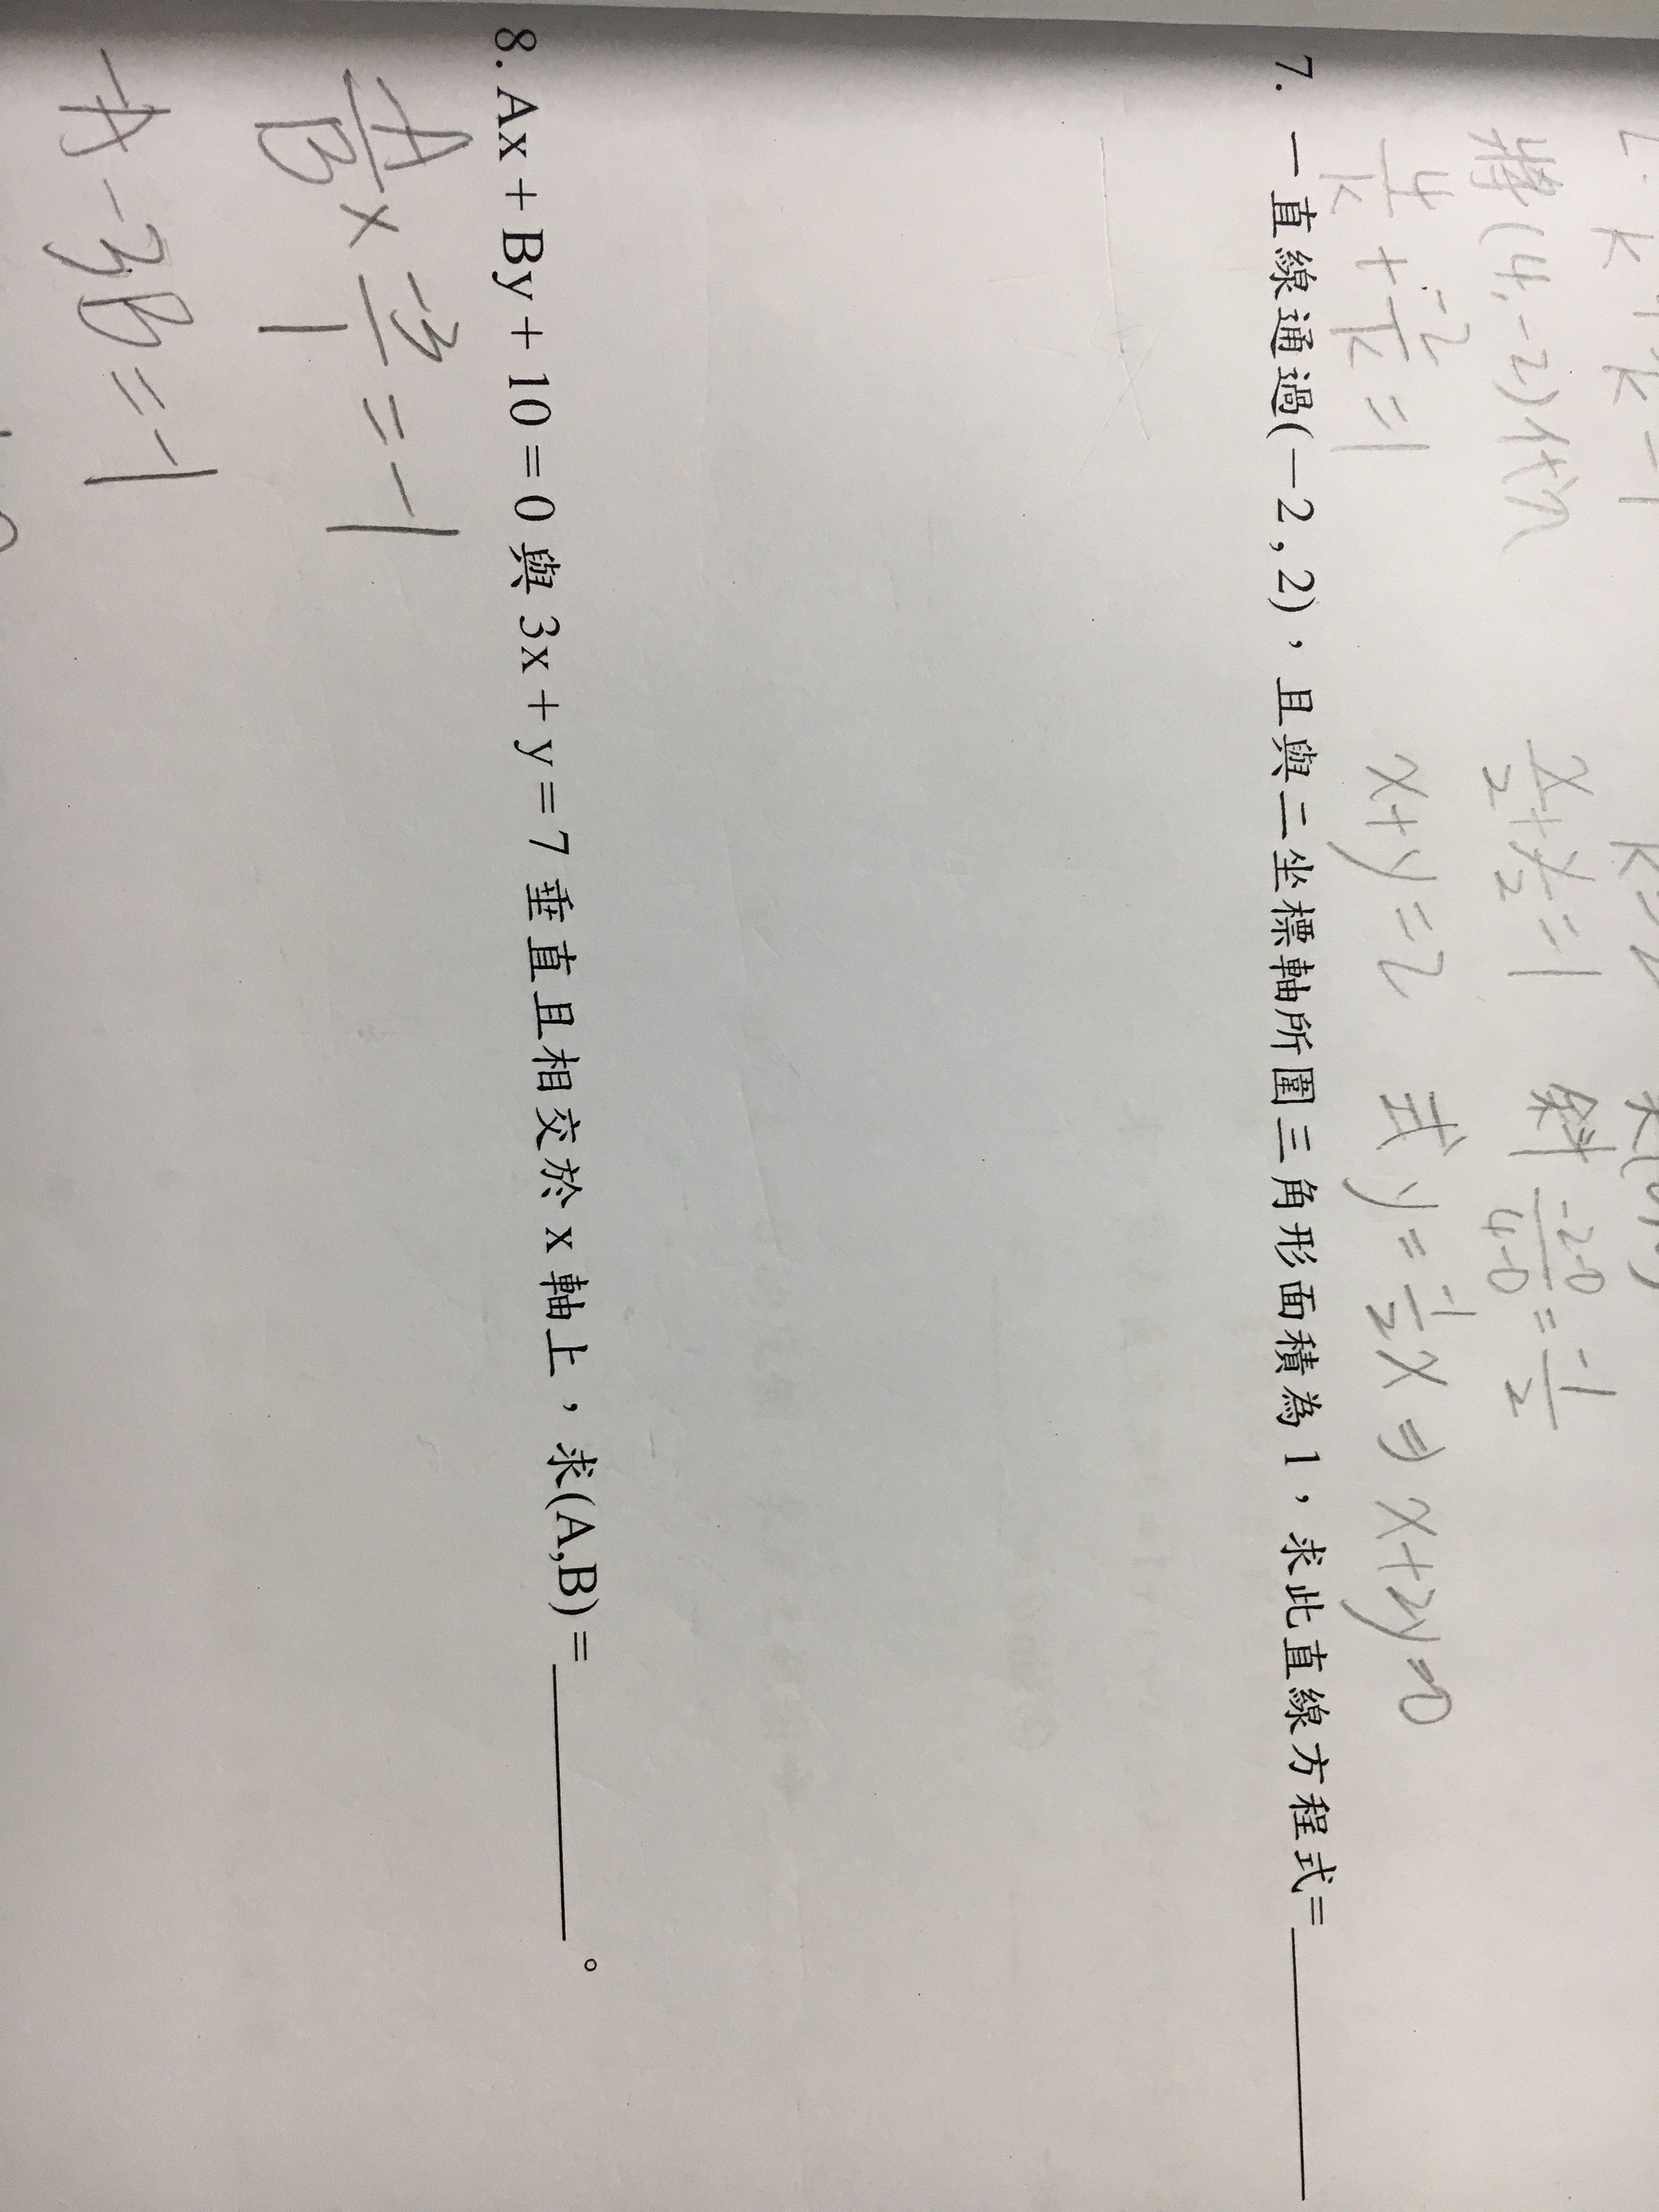 將(4,-2)代入
x/2 + y/2 = 1 斜 -2-0/4-0 = -1/2
4/k + -2/k = 1 x+y=2 式 y = -1/2 x ⇒ x+2y=0
7. 一直線通過(－2 , 2)，且與二坐標軸所圍三角形面積為 1，求此直線方程式=
8. Ax + By + 10 = 0 與 3x + y = 7 垂直且相交於 x 軸上，求(A,B)=＿＿＿＿。
-A/B × -3/1 = -1
-A -3B = -1